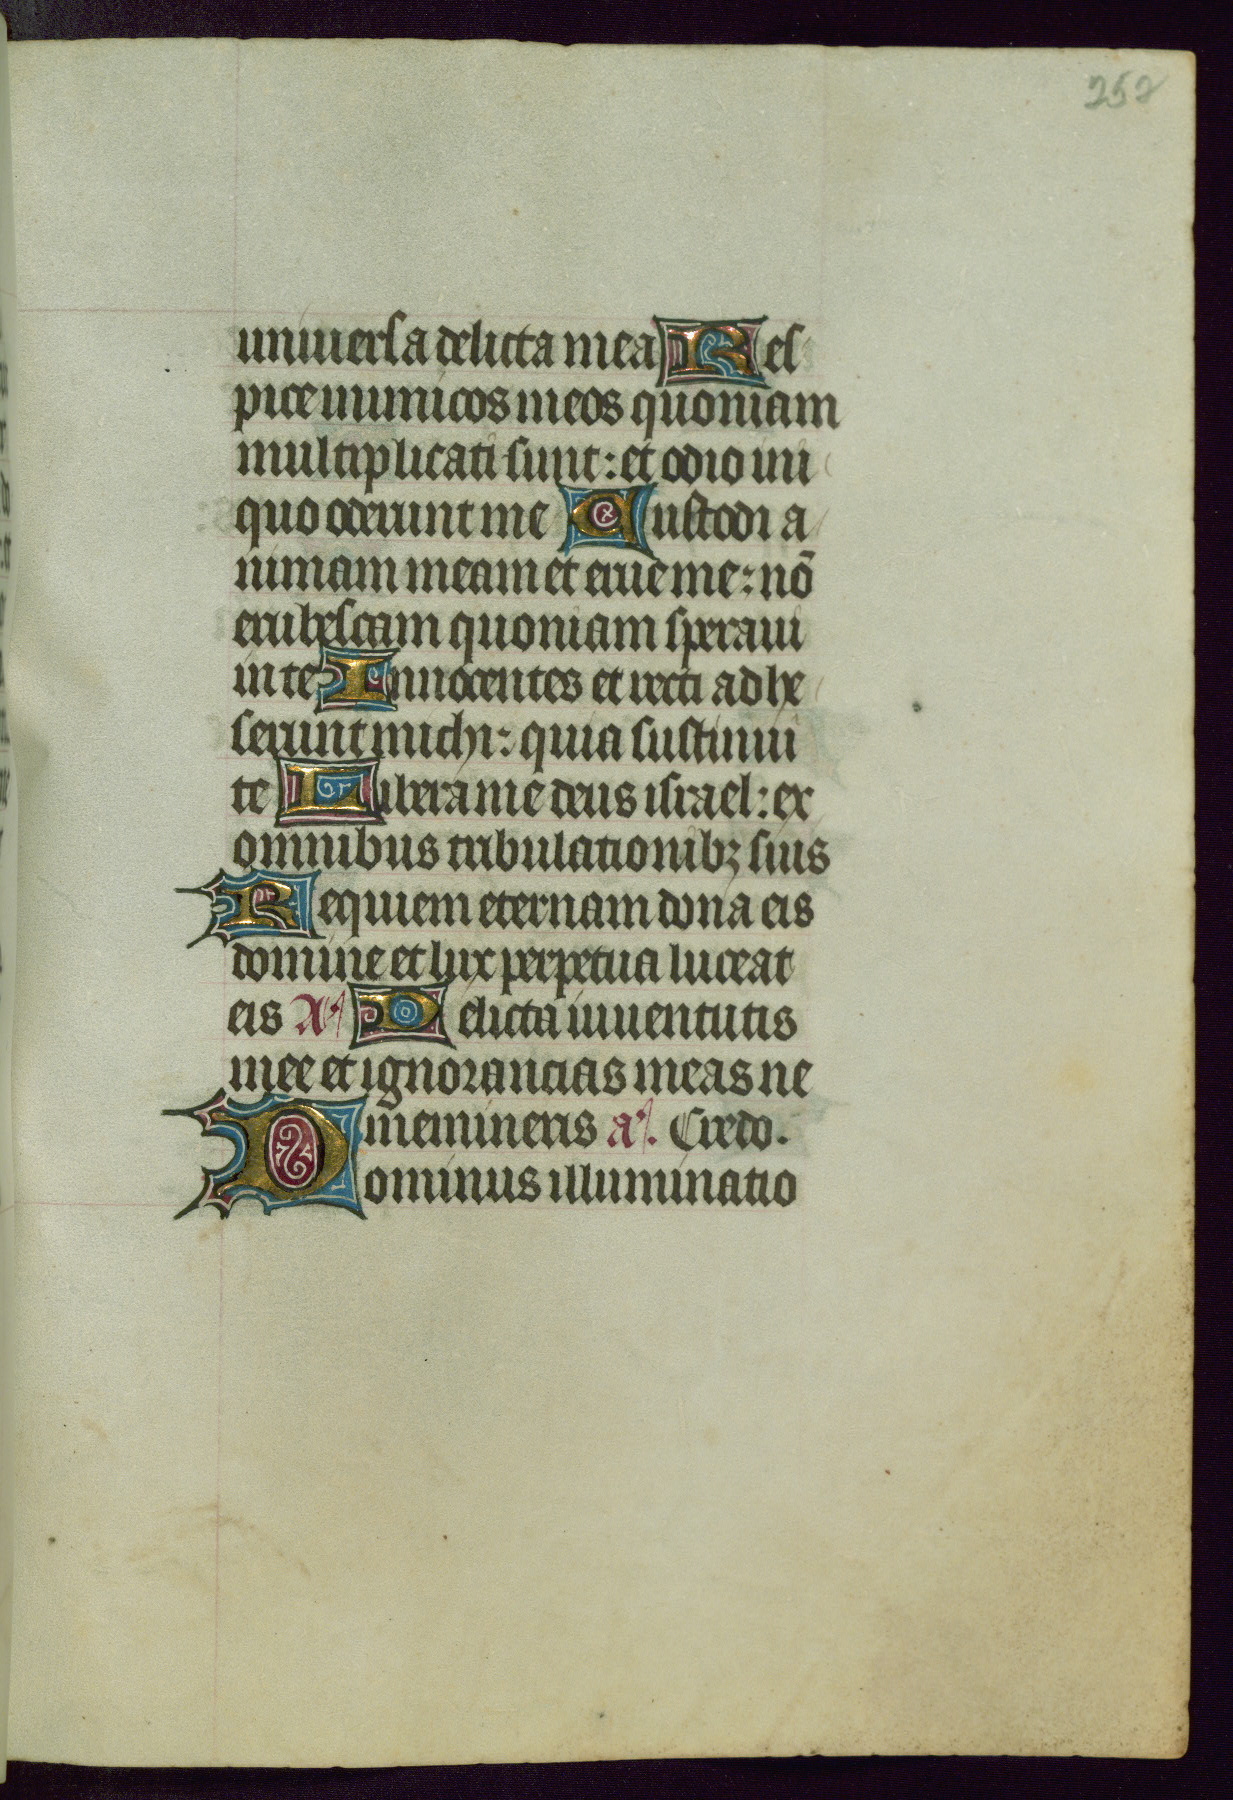 252
universa delicta mea Res
pice inimicos meos quoniam
multiplicati sunt: et odio ini
quo oderunt me Custodi a
nimam meam et erue me: nō
erubescam quoniam speravi
in te Innocentes et recti adhe
serunt michi: quia sustinui
te Libera me deus israel: ex
omnibus tribulationibꝫ suis
Requiem eternam dona eis
domine et lux perpetua luceat
eis A᷎ Delicta iuuentutis
mee et ignorancias meas ne
memineris a᷎. Credo.
Dominus illuminatio